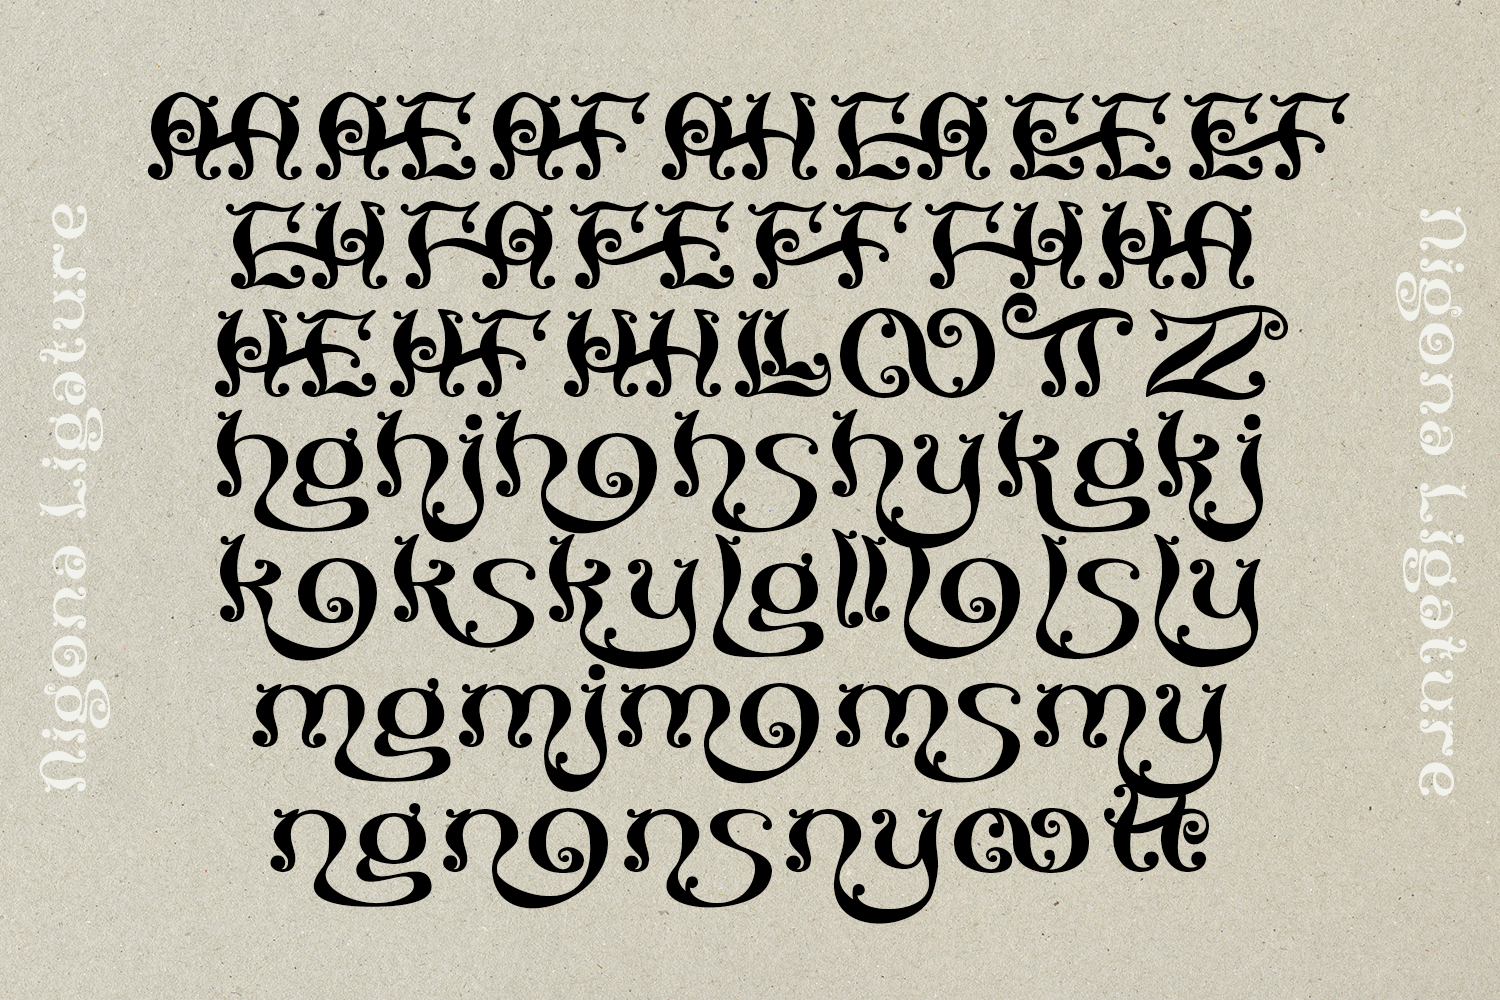 Nigona Ligature
AA AE AF AH EA EE EF
EH FA FE FF FH HA
HE HF HH LL OO TT ZZ
hg hj ho hs hy kg kj
ko ks ky lg ll lo ls ly
mg mj mo ms my
ng no ns ny oo tt
Nigona Ligature